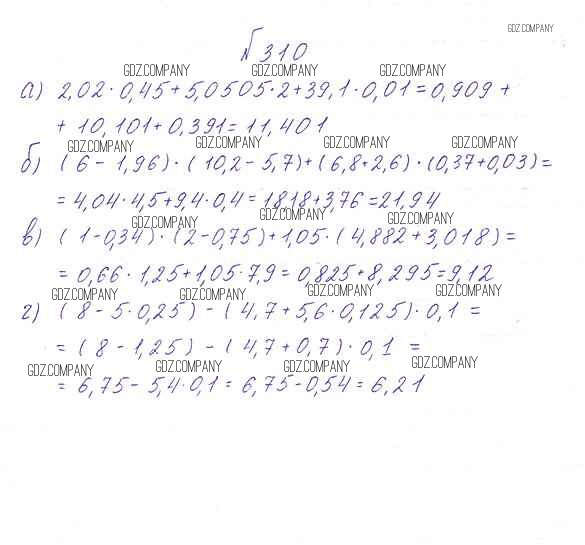 GDZ.COMPANY
№310
GDZ.COMPANY GDZ.COMPANY GDZ.COMPANY
а) 2,02·0,45+5,0505·2+39,1·0,01=0,909+
+10,101+0,391=11,401
GDZ.COMPANY GDZ.COMPANY GDZ.COMPANY GDZ.COMPANY
б) (6-1,96)·(10,2-5,7)+(6,8+2,6)·(0,37+0,03)=
=4,04·4,5+9,4·0,4=18,18+3,76=21,94
GDZ.COMPANY GDZ.COMPANY GDZ.COMPANY
в) (1-0,34)·(2-0,75)+1,05·(4,882+3,018)=
=0,66·1,25+1,05·7,9=0,825+8,295=9,12
GDZ.COMPANY GDZ.COMPANY GDZ.COMPANY GDZ.COMPANY
г) (8-5·0,25)-(4,7+5,6·0,125)·0,1=
=(8-1,25)-(4,7+0,7)·0,1=
GDZ.COMPANY GDZ.COMPANY GDZ.COMPANY GDZ.COMPANY
=6,75-5,4·0,1=6,75-0,54=6,21